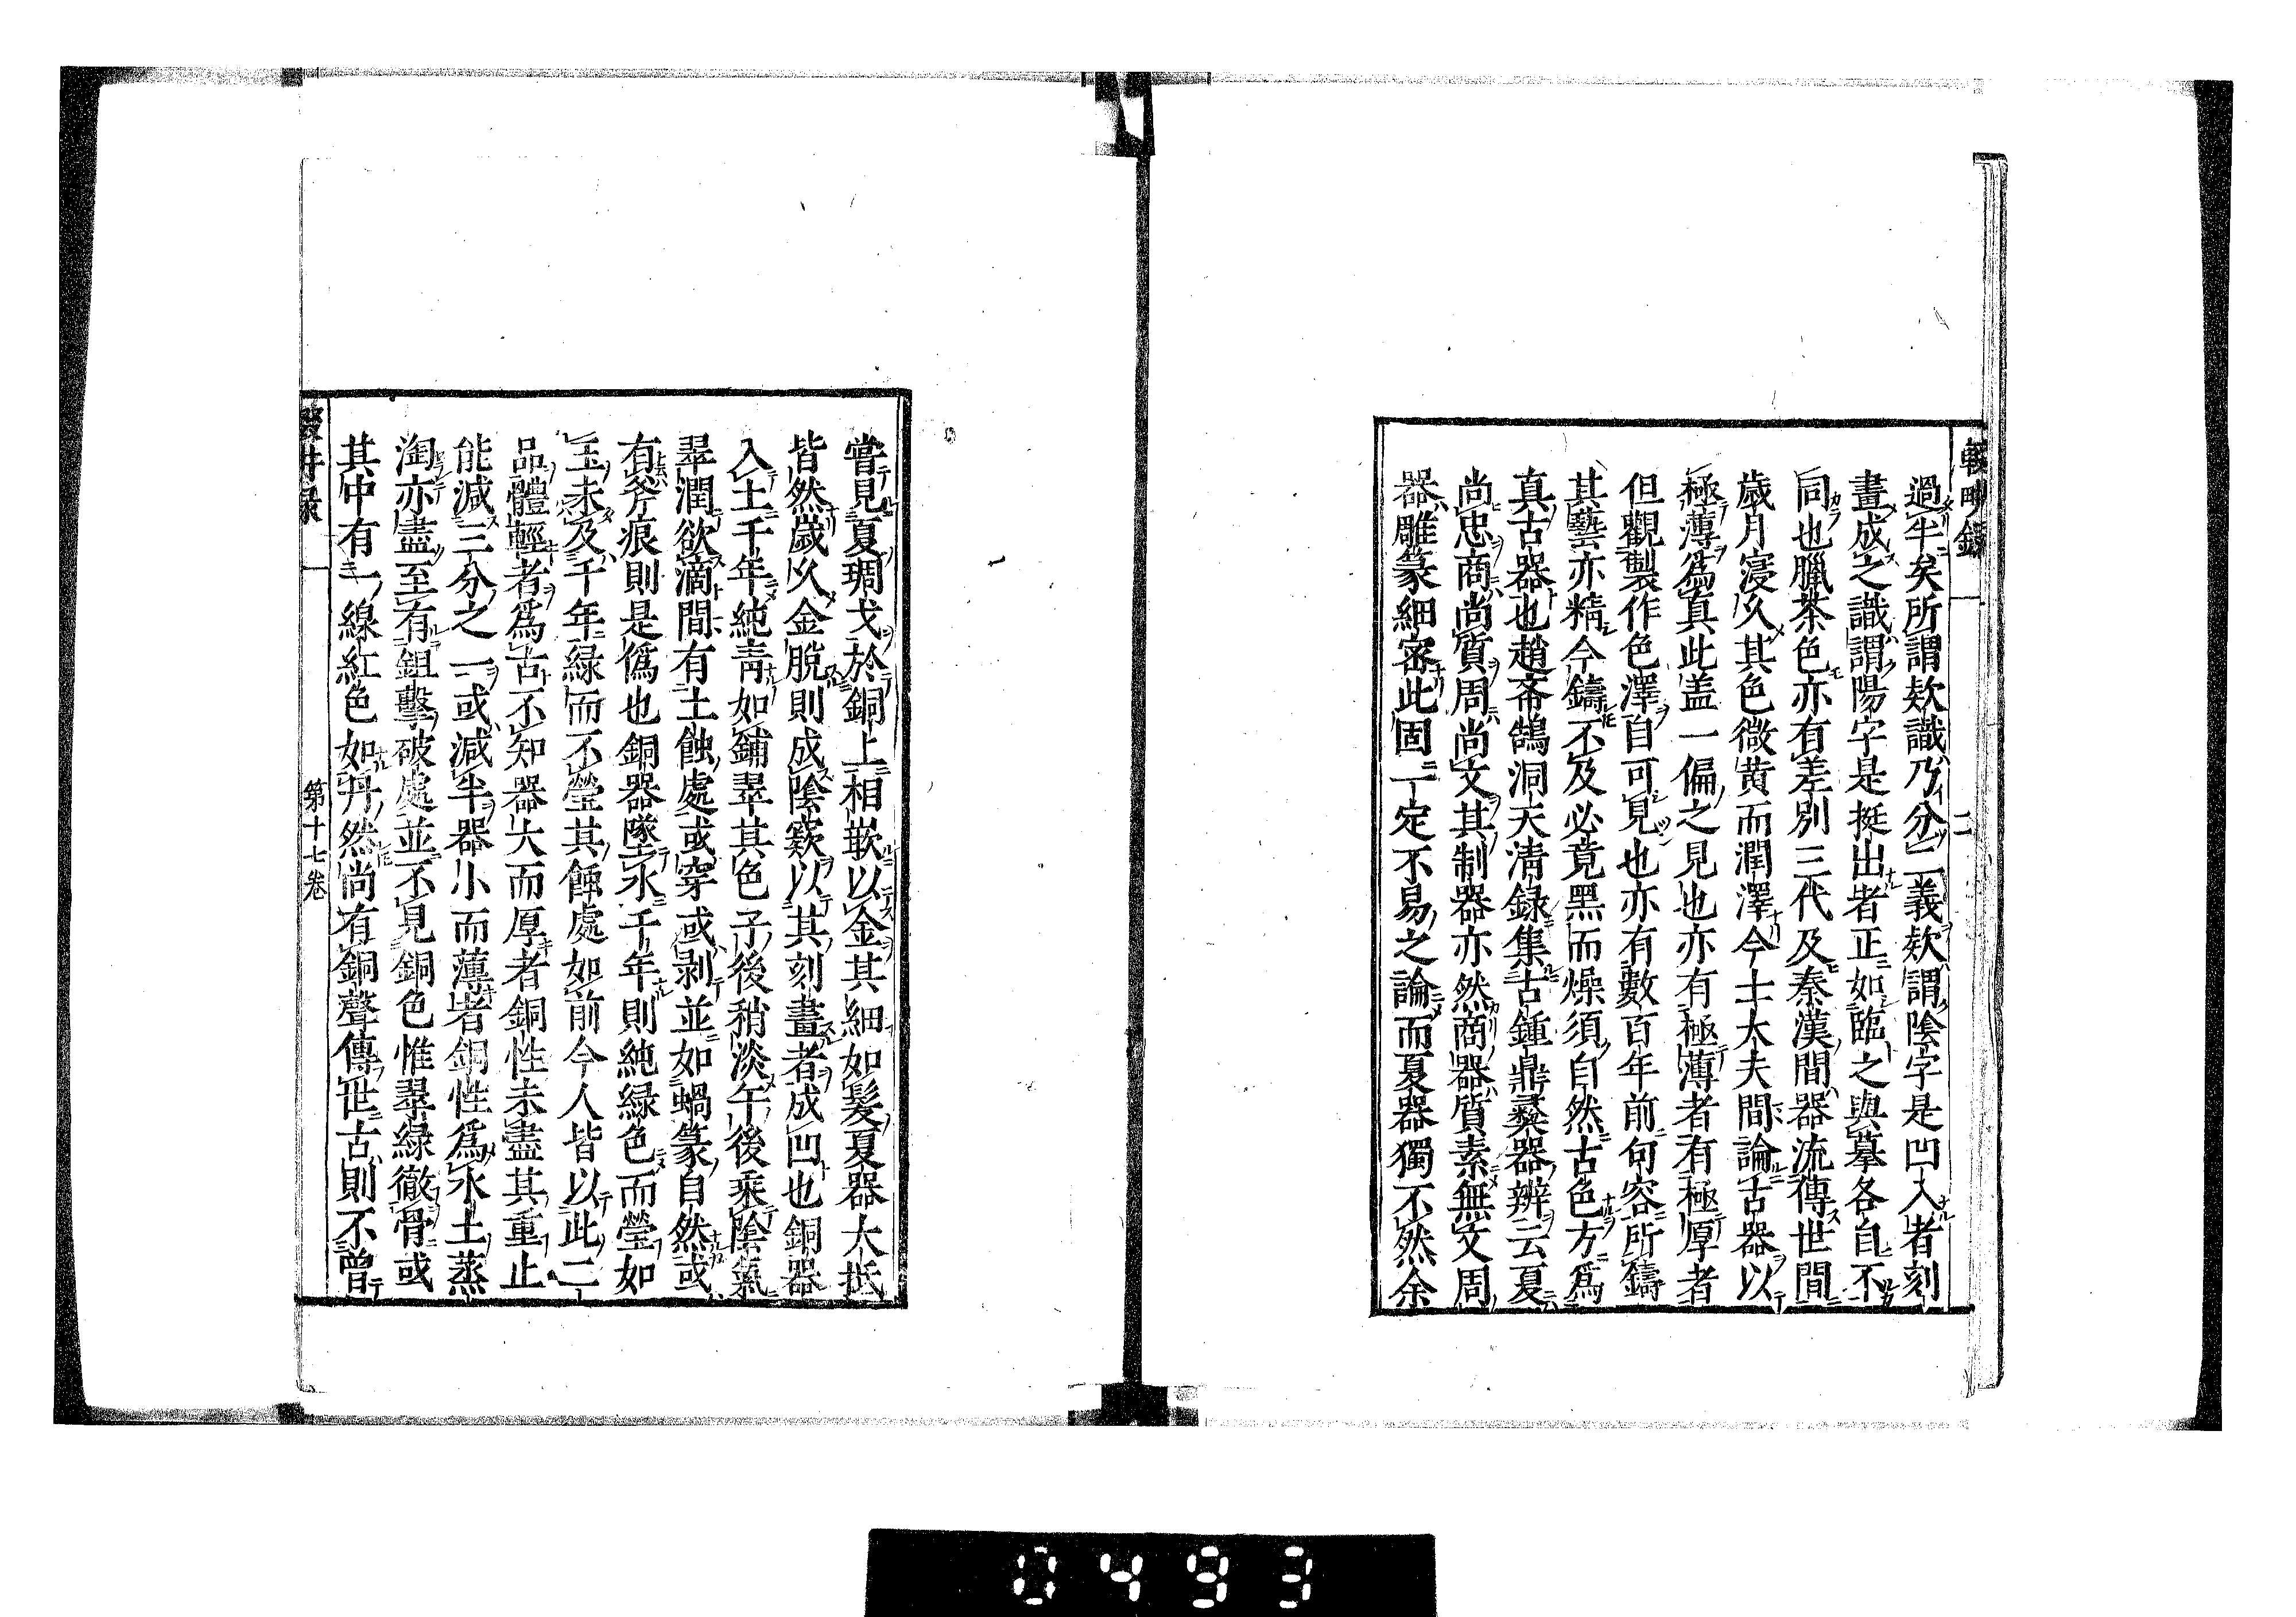 輟畊錄 二
過半矣所謂欵識乃分二義欵謂陰字是凹入者刻
畫成之識謂陽字是挺出者正如臨之與摹各自不
同也臘茶色亦有差別三代及秦漢間器流傳世間
歲月寖久其色微黄而潤澤今士大夫間論古器以
極薄爲真此盖一偏之見也亦有極薄者有極厚者
但觀製作色澤自可見也亦有數百年前句容所鑄
其藝亦精今鑄不及必竟黑而燥須自然古色方爲
真古器也趙希鵠洞天清録集古鍾鼎彝器辨云夏
尚忠商尚質周尚文其制器亦然商器質素無文周
器雕篆細密此固一定不易之論而夏器獨不然余
嘗見夏琱戈於銅上相嵌以金其細如髪夏器大抵
皆然歲久金脫則成陰窽以其刻畫者成凹也銅器
入土千年純靑如鋪翠其色子後稍淡午後乘陰氣
翠潤欲滴間有土蝕處或穿或剥並如蝸篆自然或
有斧痕則是僞也銅器墜水千年則純緑色而瑩如
玉未及千年緑而不瑩其蝕處如前今人皆以此二
品體輕者爲古不知器大而厚者銅性未盡其重止
能減三分之一或減半器小而薄者銅性爲水土蒸
淘亦盡至有鉏擊破處並不見銅色惟翠緑徹骨或
其中有一線紅色如丹然尚有銅聲傳世古則不曾
輟畊録 第十七卷